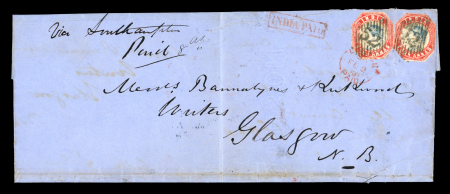 via Southampton
INDIA PAID
Paid 8 as
Messrs Bannatynes & Kirkwood
Writers
Glasgow
N. B.